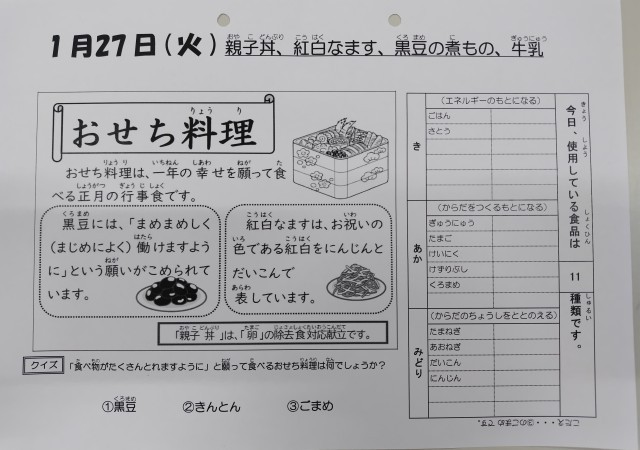 1月27日(火) 親子丼、紅白なます、黒豆の煮もの、牛乳
おせち料理
おせち料理は、一年の幸せを願って食
べる正月の行事食です。
黒豆には、「まめまめしく
(まじめによく)働けますよう
に」という願いがこめられて
います。
紅白なますは、お祝いの
色である紅白をにんじんと
だいこんで
表しています。
「親子丼」は、「卵」の除去食対応献立です。
クイズ 「食べ物がたくさんとれますように」と願って食べるおせち料理は何でしょうか?
①黒豆 ②きんとん ③ごまめ
今日、使用している食品は 11 種類です。
き
(エネルギーのもとになる)
ごはん
さとう
あか
(からだをつくるもとになる)
ぎゅうにゅう
たまご
けいにく
けずりぶし
くろまめ
みどり
(からだのちょうしをととのえる)
たまねぎ
あおねぎ
だいこん
にんじん
こたえ・・・③のごまめ です。